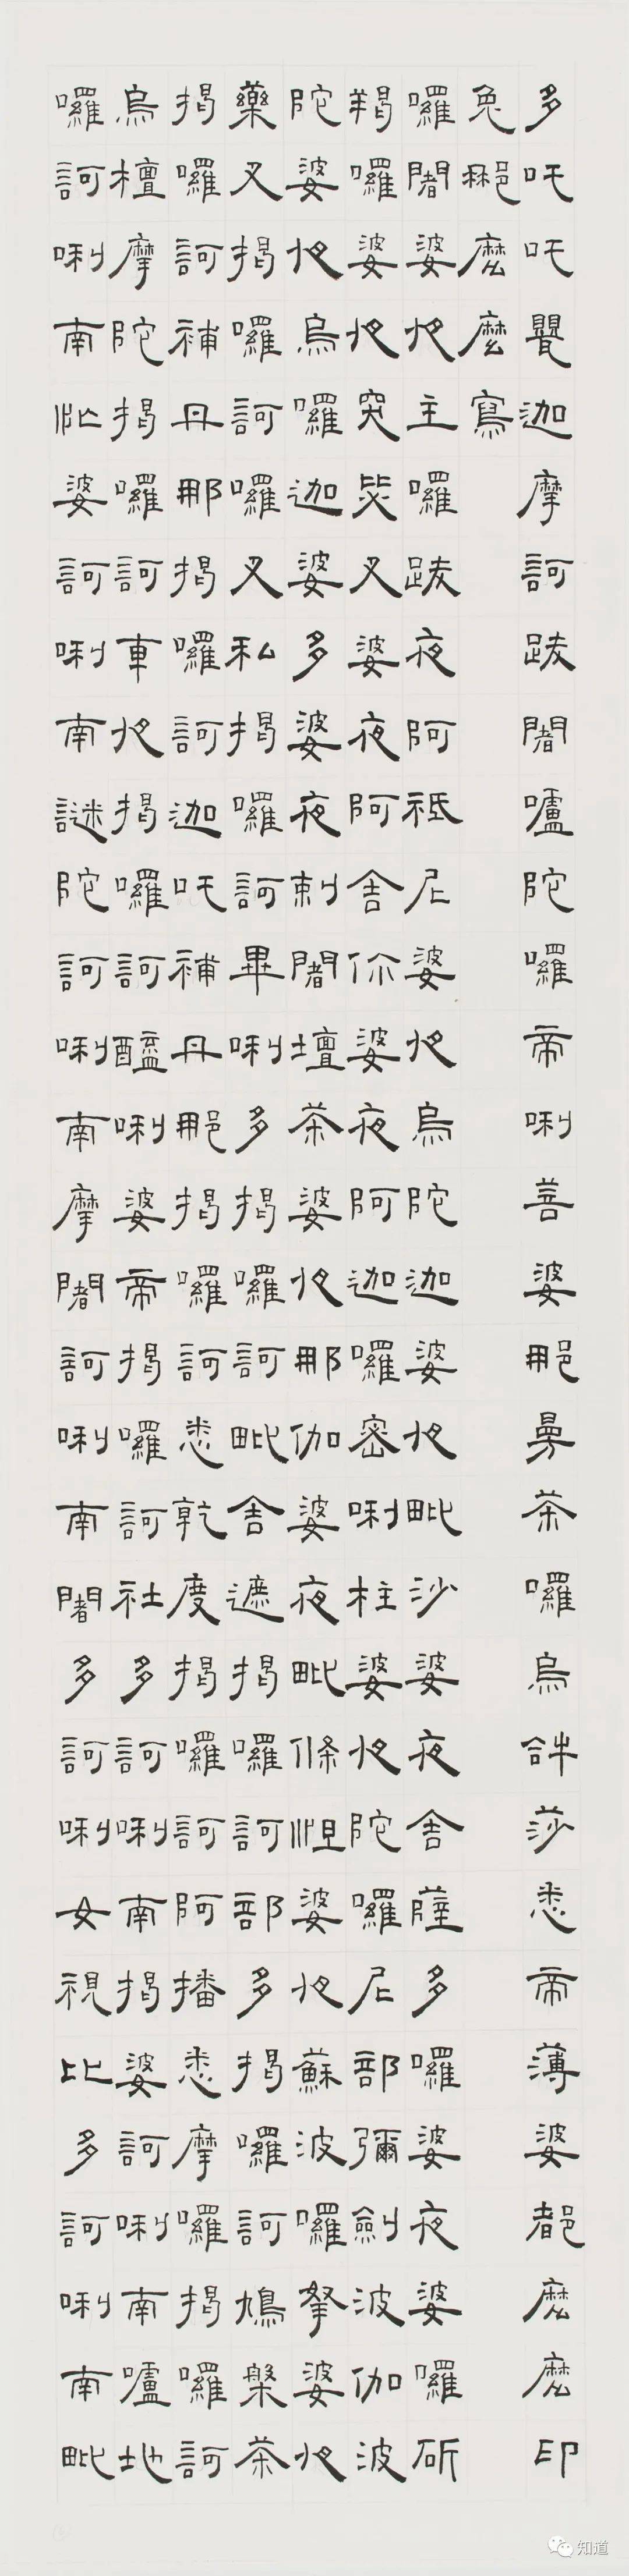 多吒吒甖迦摩訶跋闍嚧陀囉帝唎菩婆那曼茶囉烏𤙖莎悉帝薄婆都麼麼印
兔那麼麼寫
囉闍婆夜主囉跋夜阿祇尼婆夜烏陀迦婆夜毗沙婆夜舍薩多囉婆夜婆囉斫
羯囉婆夜突毖叉婆夜阿舍你婆夜阿迦囉密唎柱婆夜陀囉尼部彌劍波伽波
陀婆夜烏囉迦婆多婆夜剌闍壇茶婆夜那伽婆夜毗條怛婆夜蘇波囉拏婆夜
藥叉揭囉訶囉叉私揭囉訶畢唎多揭囉訶毗舍遮揭囉訶部多揭囉訶鳩槃茶
揭囉訶補丹那揭囉訶迦吒補丹那揭囉訶悉乾度揭囉訶阿播悉摩囉揭囉訶
烏檀摩陀揭囉訶車夜揭囉訶醯唎婆帝揭囉訶社多訶唎南揭婆訶唎南嚧地
囉訶唎南忙婆訶唎南謎陀訶唎南摩闍訶唎南闍多訶唎女視比多訶唎南毗
知道